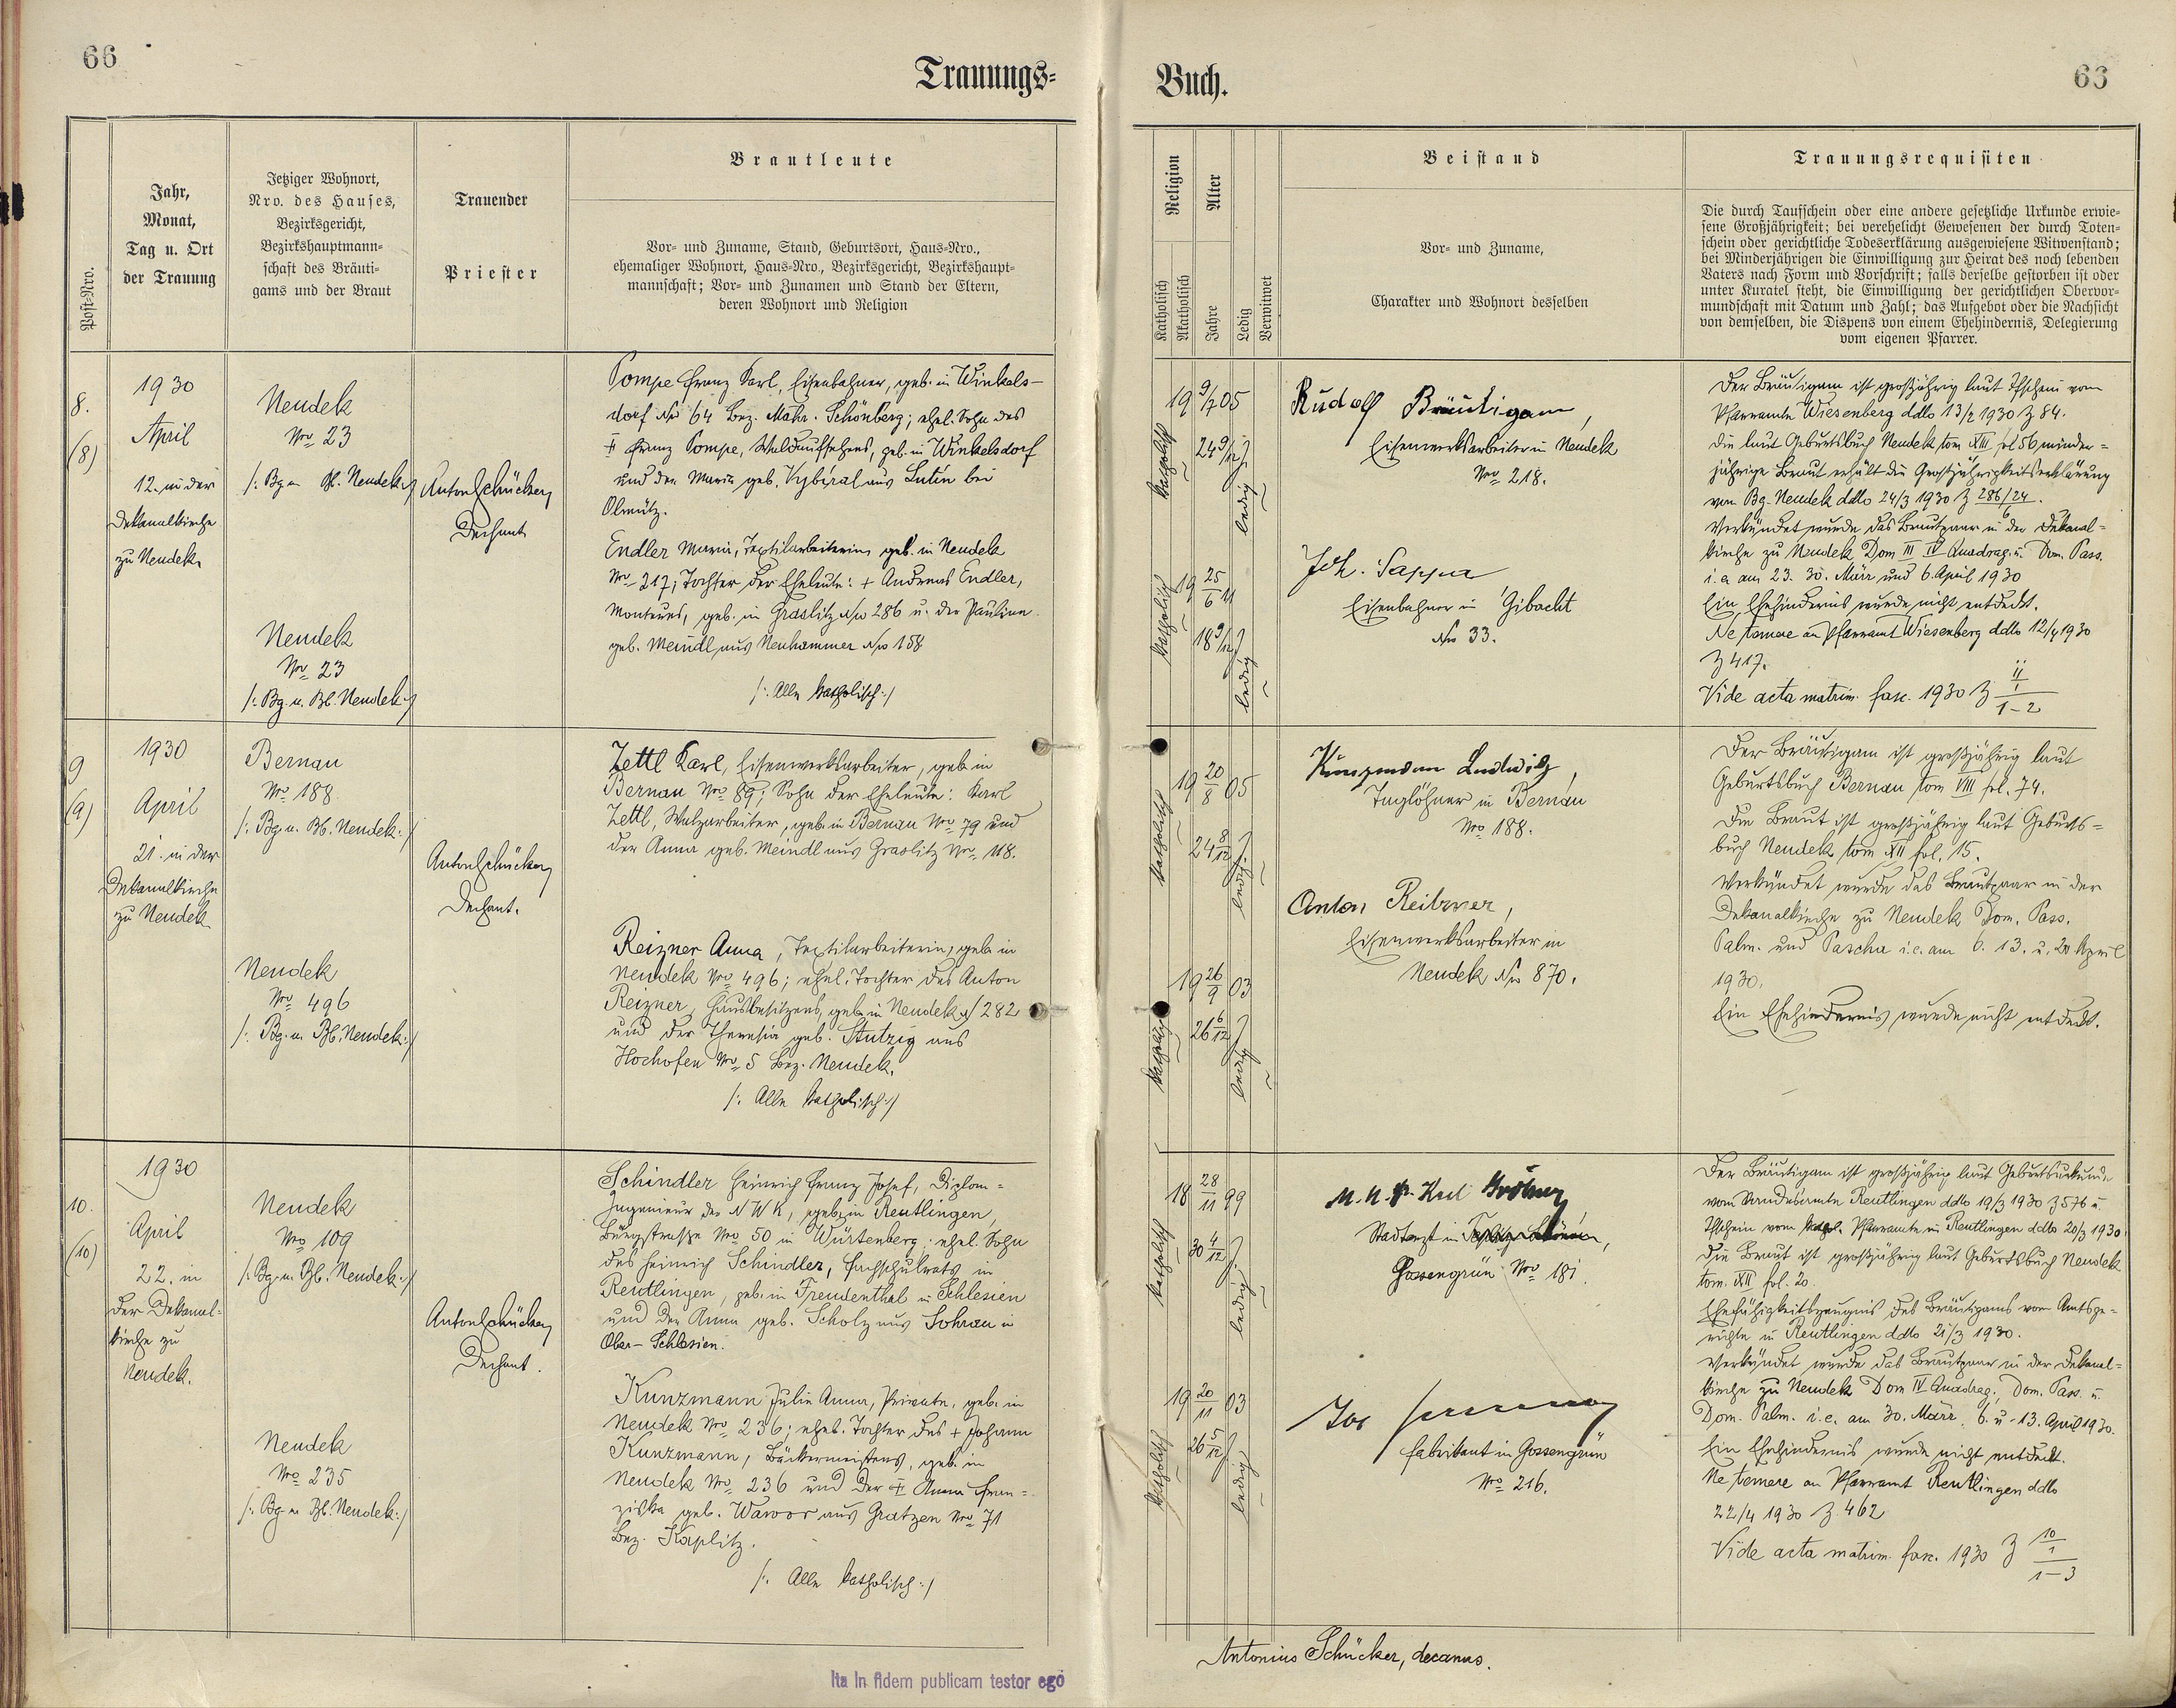 66
Trauungs-
Buch.
63
Post-Nro.
Jahr,
Monat,
Tag u. Ort
der Trauung
Jetziger Wohnort,
Nro. des Hauses,
Bezirksgericht,
Bezirkshauptmann-
schaft des Bräuti-
gams und der Braut
Trauender
Priester
Brautleute
Vor- und Zuname, Stand, Geburtsort, Haus-Nro.,
ehemaliger Wohnort, Haus-Nro., Bezirksgericht, Bezirkshaupt-
mannschaft; Vor- und Zunamen und Stand der Eltern,
deren Wohnort und Religion
Religion
Katholisch
Akatholisch
Alter
Jahre
Ledig
Verwitwet
Beistand
Vor- und Zuname,
Charakter und Wohnort desselben
Trauungsrequisiten
Die durch Taufschein oder eine andere gesetzliche Urkunde erwie-
sene Großjährigkeit; bei verehelicht Gewesenen der durch Toten-
schein oder gerichtliche Todeserklärung ausgewiesene Witwenstand;
bei Minderjährigen die Einwilligung zur Heirat des noch lebenden
Vaters nach Form und Vorschrift; falls derselbe gestorben ist oder
unter Kuratel steht, die Einwilligung der gerichtlichen Obervor-
mundschaft mit Datum und Zahl; das Aufgebot oder die Nachsicht
von demselben, die Dispens von einem Ehehindernis, Delegierung
vom eigenen Pfarrer.
8.
(8)
1930
April
12. in der
Dekanalkirche
zu Neudek.
Neudek
Nro 23
/: Bg u Bh. Neudek :/
Neudek
Nro 23
/: Bg. u. Bh. Neudek :/
Anton Schücker,
Dechant
Pompe Franz Karl, Eisenbahner, geb. in Winkels-
dorf Nro 64 Bez. Mähr. Schönberg; ehel. Sohn des
† Franz Pompe, Waldaufsehers, geb. in Winkelsdorf
und der Maria geb. Vybíral aus Lutín bei
Olmütz.
Endler Maria, Textilarbeiterin, geb. in Neudek
Nro 217; Tochter der Eheleute: + Andreas Endler,
Monteurs, geb. in Graslitz Nro 286 u. der Pauline
geb. Meindl aus Neuhammer Nro 158
/: Alle katholisch :/
katholisch
19 9/7 05
24 9/12 J
ledig
katholisch
19 25/6 11
18 9/12 J
ledig
Rudolf Bräutigam,
Eisenwerksarbeiter in Neudek
Nro 218.
Joh. Sappa
Eisenbahner in Gibacht
Nro 33.
Der Bräutigam ist großjährig laut Tfschein vom
Pfarramte Wiesenberg ddto 13/2 1930 Z 84.
Die laut Geburtsbuch Neudek tom XIII fol 56 minder-
jährige Braut erhält die Großjährigkeitserklärung
von Bg. Neudek ddto 24/3 1930 Z 286/24.
Verkündet wurde das Brautpaar in der Dekanal-
kirche zu Neudek Dom III IV Quadrag. u. Dom. Pass.
i. e. am 23. 30. März und 6. April 1930
Ein Ehehindernis wurde nicht entdeckt.
Ne temere an Pfarramt Wiesenberg ddto 12/4 1930
Z 417.
Vide acta matrim. fasc. 1930 Z
1-2
9
(9)
1930
April
21. in der
Dekanalkirche
zu Neudek
Bernau
Nro 188
/: Bg. u. Bh. Neudek :/
Neudek
Nro 496
/: Bg. u. Bh. Neudek :/
Anton Schücker,
Dechant.
Zettl Karl, Eisenwerksarbeiter, geb. in
Bernau Nro 89; Sohn der Eheleute: Karl
Zettl, Walzarbeiter, geb. in Bernau Nro 79 und
der Anna geb. Meindl aus Graslitz Nro 118.
Reizner Anna, Textilarbeiterin, geb. in
Neudek Nro 496; ehel. Tochter des Anton
Reizner, Hausbesitzers, geb. in Neudek N 282
und der Theresia geb. Stutzig aus
Hochofen Nro 5 Bez. Neudek.
/: Alle katholisch :/
katholisch
19 20/8 05
24 8/12 J
ledig
katholisch
19 26/9 03
26 6/12 J
ledig
Kunzmann Ludwig,
Taglöhner in Bernau
Nro 188.
Anton
Eisenwerksarbeiter in
Neudek Nro 870.
Der Bräutigam ist großjährig laut
Geburtsbuch Bernau tom VIII fol. 74.
Die Braut ist großjährig laut Geburts-
buch Neudek tom XII fol. 15.
Verkündet wurde das Brautpaar in der
Dekanalkirche zu Neudek Dom. Pass.
Palm. und Pascha i. e. am 6. 13. u. 20 April
1930.
Ein Ehehindernis wurde nicht entdeckt.
10.
(10)
1930
April
22. in
der Dekanal-
kirche zu
Neudek.
Neudek
Nro 109
/: Bg. u. Bh. Neudek :/
Neudek
Nro 235
/: Bg u Bh. Neudek :/
Anton Schücker,
Dechant.
Schindler Heinrich Franz Josef, Diplom-
Ingenieur der NWK, geb. in Reutlingen,
Burgstraße Nro 50 in Würtenberg; ehel. Sohn
des Heinrich Schindler, Fachschulrats in
Reutlingen, geb. in Freudenthal in Schlesien
und der Anna geb. Scholz aus Sohrau in
Ober-Schlesien.
Kunzmann Julie Anna, Private, geb. in
Neudek Nro 236; ehel. Tochter des + Johann
Kunzmann, Bäckermeisters, geb. in
Neudek Nro 236 und der † Anna Fran-
ziska geb. Wawor aus Gratzen Nro 71
Bez. Kaplitz.
/: Alle katholisch :/
katholisch
18 28/11 99
30 4/12 J
ledig
katholisch
19 20/11 03
26 5/12 J
ledig
Stadtarzt in
Gossengrün Nro 181.
Jos
Fabrikant in Gossengrün
Nro 216.
Der Bräutigam ist großjährig laut Geburtsurkunde
vom Standesamte Reutlingen ddto 19/3 1930 Z 576 u.
Tfschein vom kathol. Pfarramte in Reutlingen ddto 20/3 1930.
Die Braut ist großjährig laut Geburtsbuch Neudek
tom. XII fol. 20.
Ehefähigkeitszeugnis des Bräutigams vom Amtsge-
richte in Reutlingen ddto 21/3 1930.
Verkündet wurde das Brautpaar in der Dekanal-
kirche zu Neudek Dom IV Quadrag., Dom. Pass. u.
Dom. Palm. i. e. am 30. März, 6. u. 13. April 1930.
Ein Ehehindernis wurde nicht entdeckt.
Ne temere an Pfarramt Reutlingen ddto
22/4 1930 Z. 462
Vide acta matrim. fasc. 1930 Z 10/1
1-3
Ita in fidem publicam testor ego
Antonius Schücker, decanus.